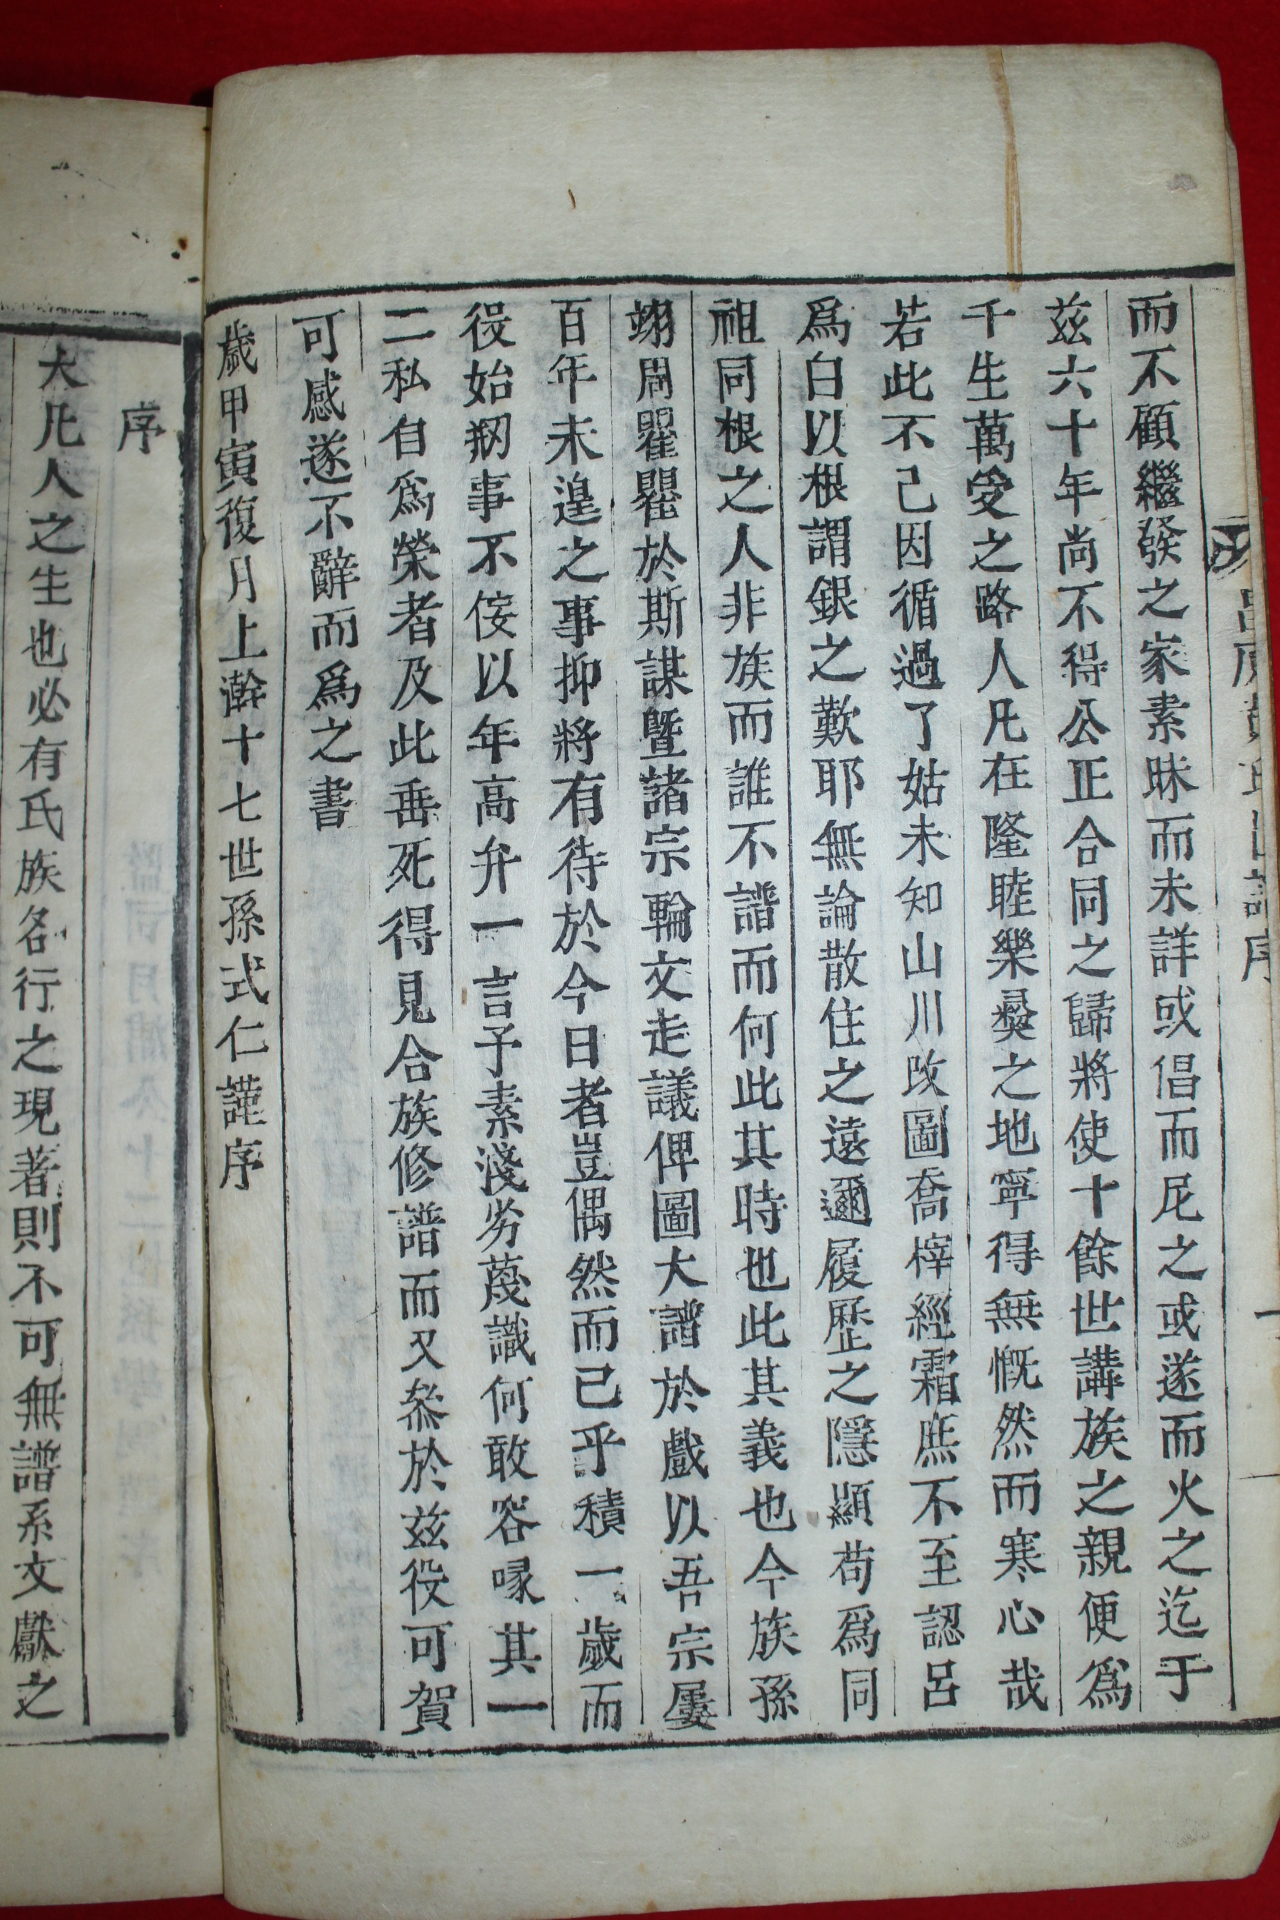 而不顧繼發之家素昧而未詳或倡而尼之或遂而火之迄于
玆六十年尚不得公正合同之歸將使十餘世講族之親便爲
千生萬受之路人凡在隆睦樂彛之地寧得無慨然而寒心哉
若此不已因循過了姑未知山川改圖喬梓經霜庶不至認呂
爲白以根謂銀之歎耶無論散住之遠邇履歷之隱顯苟爲同
祖同根之人非族而誰不譜而何此其時也此其義也今族孫
翊周瞿瞿於斯謀曁諸宗輪文走議俾圖大譜於戲以吾宗屢
百年未遑之事抑將有待於今日者豈偶然而已乎積一歲而
役始刱事不侫以年高弁一言予素淺劣蔑識何敢容喙其一
二私自爲榮者及此垂死得見合族修譜而又叅於玆役可賀
可感遂不辭而爲之書
歲甲寅復月上澣十七世孫式仁謹序
序
大凡人之生也必有氏族名行之現著則不可無譜系文獻之